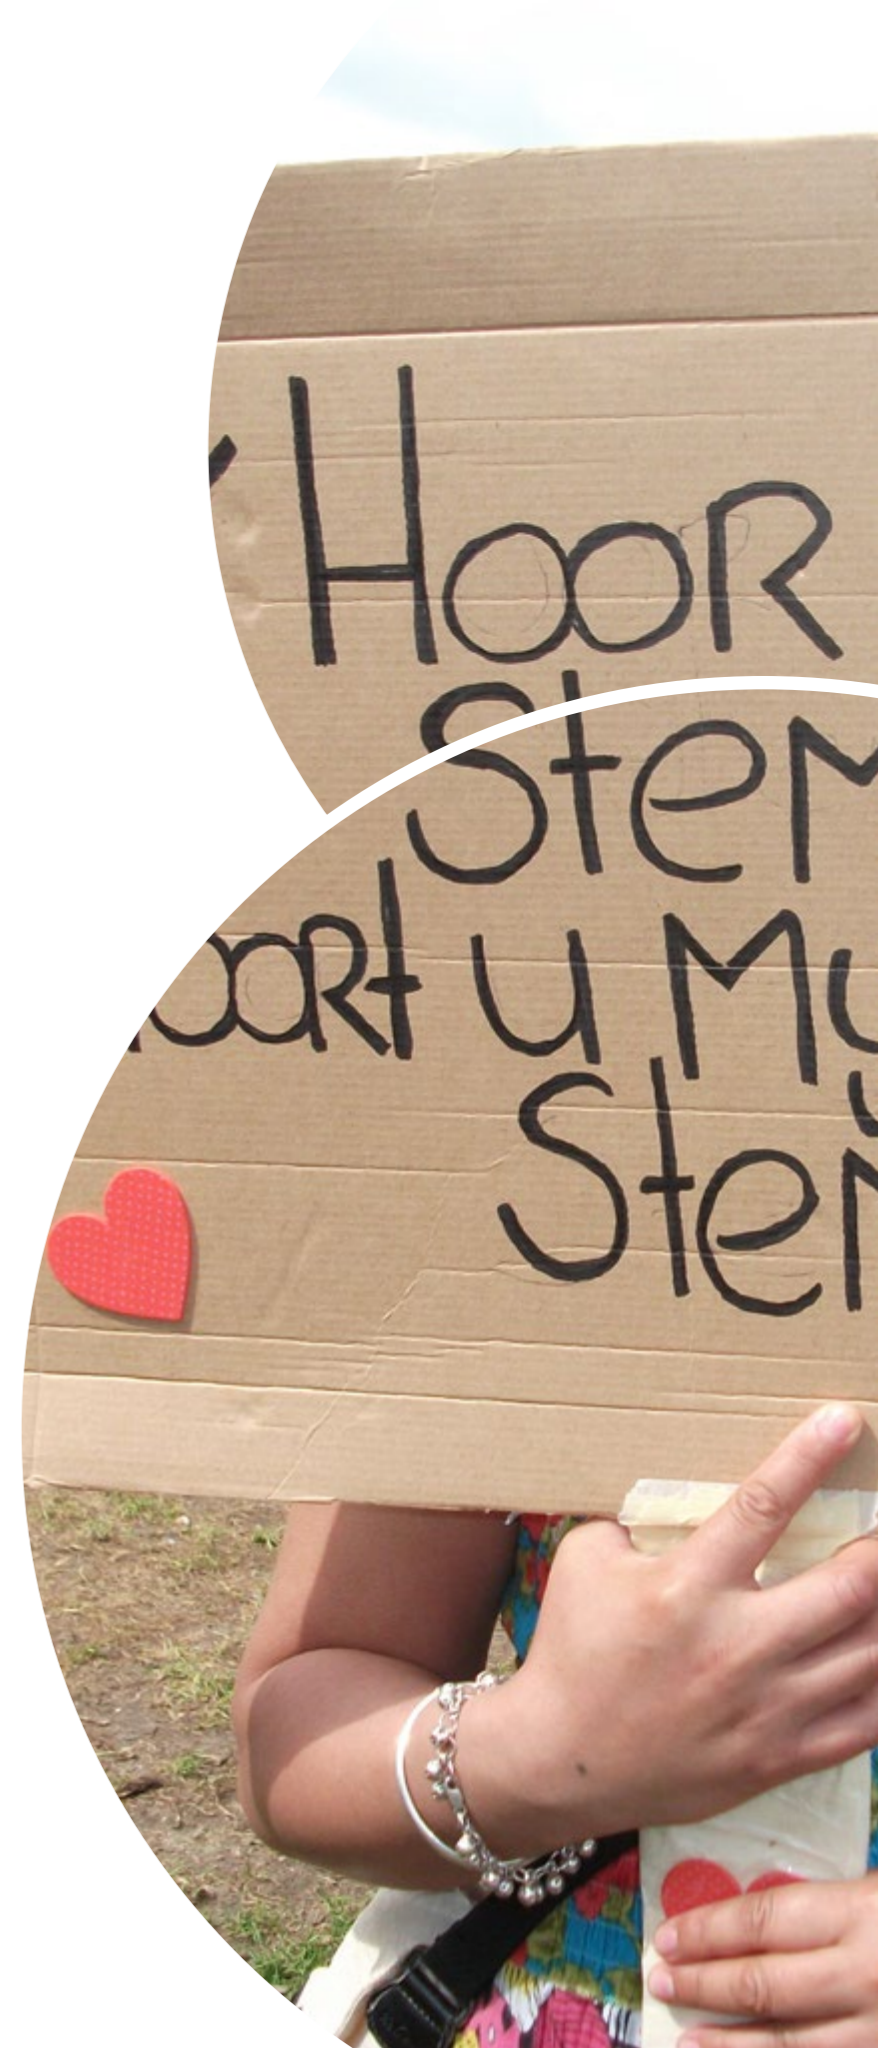 Hoor
Stem
oort u My
Stem